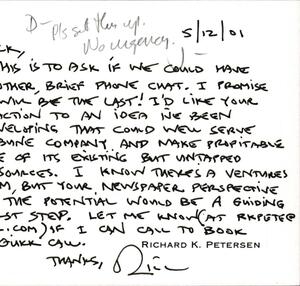 D- Pls set this up.
No urgency.
5/12/01
CK,
THIS IS TO ASK IF WE COULD HAVE
OTHER, BRIEF PHONE CHAT. I PROMISE
WILL BE THE LAST! I'D LIKE YOUR
ACTION TO AN IDEA I'VE BEEN
VELOPING THAT COULD WELL SERVE
BUNE COMPANY AND MAKE PROFITABLE
E OF ITS EXISTING BUT UNTAPPED
SOURCES. I KNOW THERE'S A VENTURES
M, BUT YOUR NEWSPAPER PERSPECTIVE
THE POTENTIAL WOULD BE A GUIDING
ST STEP. LET ME KNOW (AT RKPETE@
.COM) IF I CAN CALL TO BOOK
QUICK CALL.
RICHARD K. PETERSEN
THANKS,